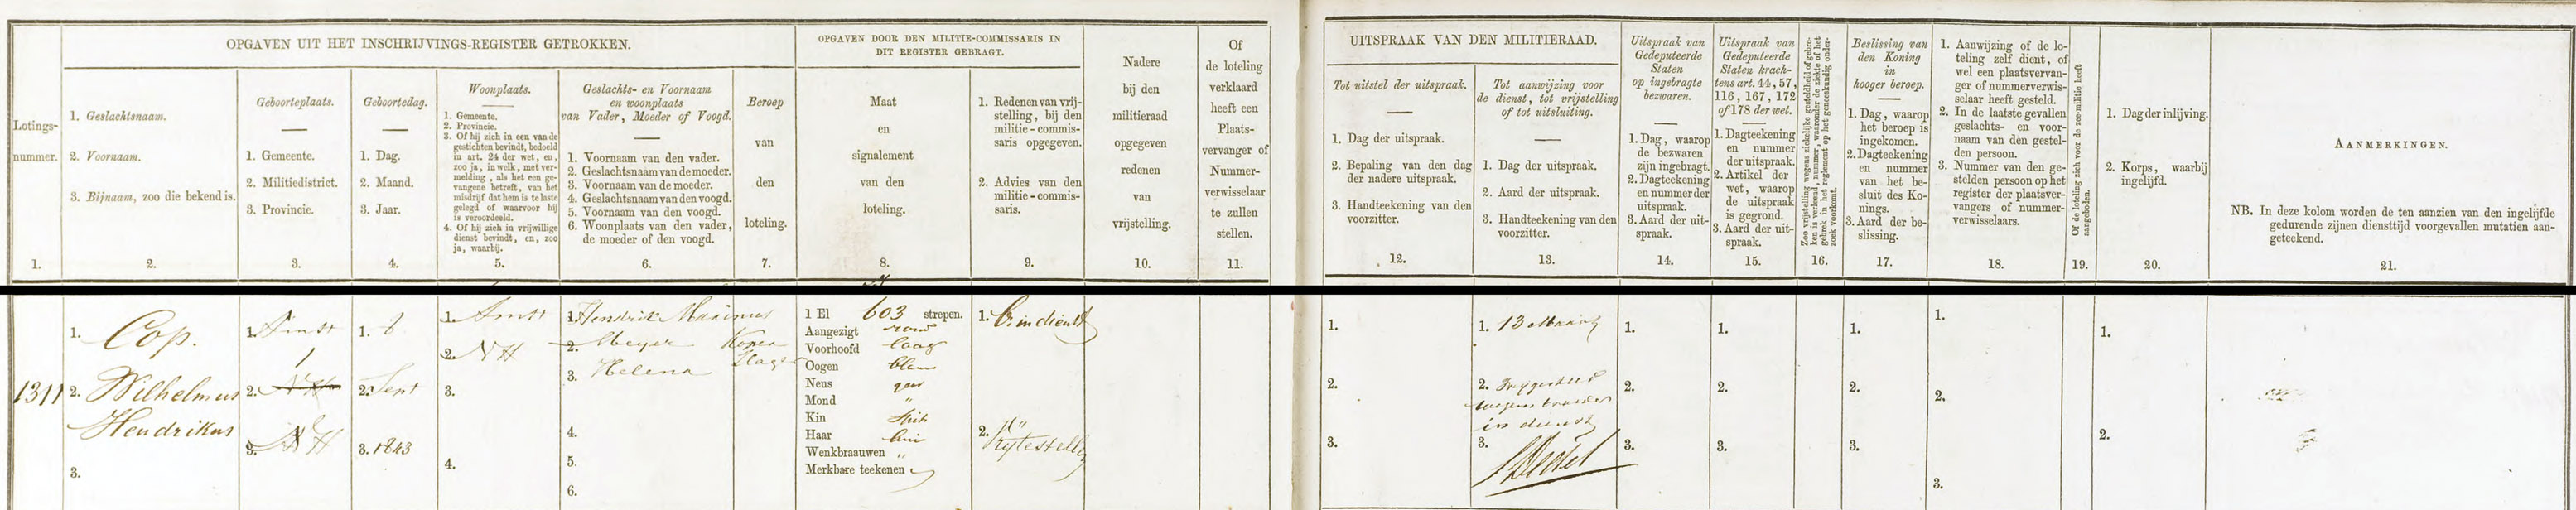 OPGAVEN UIT HET INSCHRIJVINGS-REGISTER GETROKKEN.
OPGAVEN DOOR DEN MILITIE-COMMISSARIS IN
DIT REGISTER GEBRAGT.
Lotings-
nummer.
1.
1. Geslachtsnaam.
2. Voornaam.
3. Bijnaam, zoo die bekend is.
2.
Geboorteplaats.
1. Gemeente.
2. Militiedistrict.
3. Provincie.
3.
Geboortedag.
1. Dag.
2. Maand.
3. Jaar.
4.
Woonplaats.
1. Gemeente.
2. Provincie.
3. Of hij zich in een van de
gestichten bevindt, bedoeld
in art. 24 der wet, en,
zoo ja, in welk, met ver-
melding, als het een ge-
vangene betreft, van het
misdrijf dat hem is te laste
gelegd of waarvoor hij
is veroordeeld.
4. Of hij zich in vrijwillige
dienst bevindt, en, zoo
ja, waarbij.
5.
Geslachts- en Voornaam
en woonplaats
van Vader, Moeder of Voogd.
1. Voornaam van den vader.
2. Geslachtsnaam van de moeder.
3. Voornaam van de moeder.
4. Geslachtsnaam van den voogd.
5. Voornaam van den voogd.
6. Woonplaats van den vader,
de moeder of den voogd.
6.
Beroep
van
den
loteling.
7.
Maat
en
signalement
van den
loteling.
8.
1. Redenen van vrij-
stelling, bij den
militie-commis-
saris opgegeven.
2. Advies van den
militie-commis-
saris.
9.
Nadere
bij den
militieraad
opgegeven
redenen
van
vrijstelling.
10.
Of
de loteling
verklaard
heeft een
Plaats-
vervanger of
Nummer-
verwisselaar
te zullen
stellen.
11.
UITSPRAAK VAN DEN MILITIERAAD.
Tot uitstel der uitspraak.
1. Dag der uitspraak.
2. Bepaling van den dag
der nadere uitspraak.
3. Handteekening van den
voorzitter.
12.
Tot aanwijzing voor
de dienst, tot vrijstelling
of tot uitsluiting.
1. Dag der uitspraak.
2. Aard der uitspraak.
3. Handteekening van den
voorzitter.
13.
Uitspraak van
Gedeputeerde
Staten
op ingebragte
bezwaren.
1. Dag, waarop
de bezwaren
zijn ingebragt.
2. Dagteekening
en nummer der
uitspraak.
3. Aard der uit-
spraak.
14.
Uitspraak van
Gedeputeerde
Staten krach-
tens art. 44, 57,
116, 167, 172
of 178 der wet.
1. Dagteekening
en nummer
der uitspraak.
2. Artikel der
wet, waarop
de uitspraak
is gegrond.
3. Aard der uit-
spraak.
15.
Zoo vrijstelling wegens ziekelijke gesteldheid of gebre-
ken is verleend, nummer, waaronder de ziekte of het
gebrek in het reglement op het geneeskundig onder-
zoek voorkomt.
16.
Beslissing van
den Koning
in
hooger beroep.
1. Dag, waarop
het beroep is
ingekomen.
2. Dagteekening
en nummer
van het be-
sluit des Ko-
nings.
3. Aard der be-
slissing.
17.
1. Aanwijzing of de lo-
teling zelf dient, of
wel een plaatsvervan-
ger of nummerverwis-
selaar heeft gesteld.
2. In de laatste gevallen
geslachts- en voor-
naam van den gestel-
den persoon.
3. Nummer van den ge-
stelden persoon op het
register der plaatsver-
vangers of nummer-
verwisselaars.
18.
Of de loteling zich voor de zee-militie heeft
aangeboden.
19.
1. Dag der inlijving.
2. Korps, waarbij
ingelijfd.
20.
AANMERKINGEN.
NB. In deze kolom worden de ten aanzien van den ingelijfde
gedurende zijnen diensttijd voorgevallen mutatien aan-
geteekend.
21.
1311
1. Cop.
2. Wilhelmus
Hendrikus
3.
1. Amst
2. 1
3. NH
1. 8
2. Sept
3. 1843
1. Amst
2. NH
3.
4.
1. Hendrik Marinus
2. Meyer
3. Helena
4.
5.
6.
Koper
Slager
1 El 603 strepen.
Aangezigt rond
Voorhoofd laag
Oogen blauw
Neus gew
Mond "
Kin
Haar bruin
Wenkbraauwen "
Merkbare teekenen
1. Br. in dienst
2.
Vrijtestellen
1.
2.
3.
1. 13 Maart
2. Vrijgesteld
wegens broeder
in dienst
3.
1.
2.
3.
1.
2.
3.
1.
2.
3.
1.
2.
3.
1.
2.